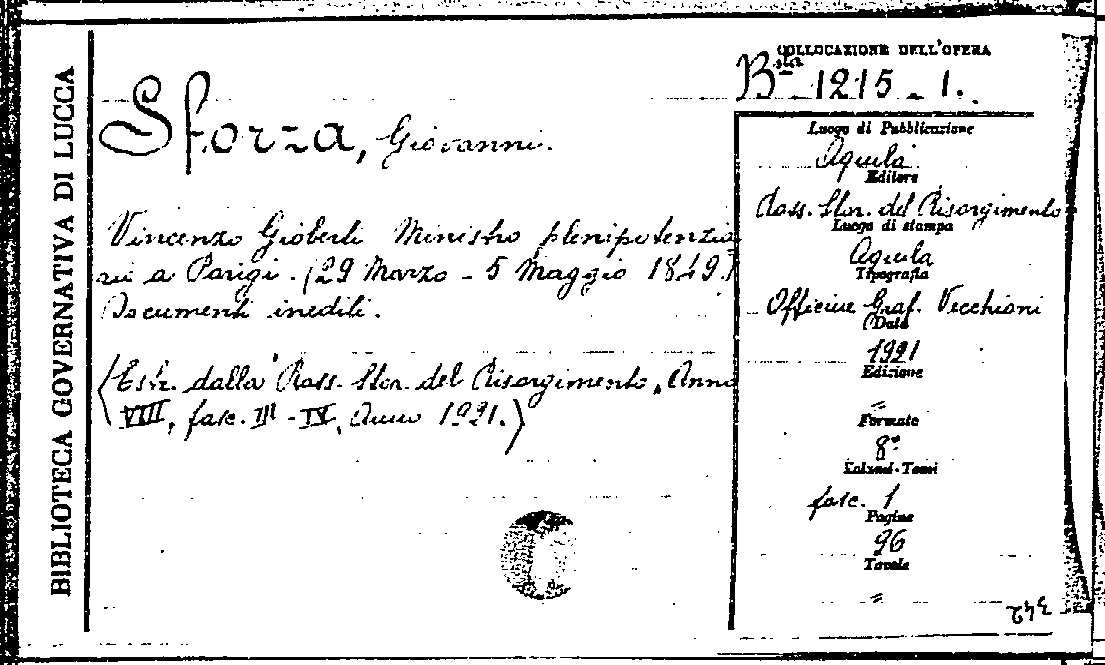 BIBLIOTECA GOVERNATIVA DI LUCCA
Sforza, Giovanni.
Vincenzo Gioberti Ministro plenipotenzia
rio a Parigi. (29 Marzo - 5 Maggio 1849.)
Documenti inediti.
(Estr. dalla "Rass. Stor. del Risorgimento", Anno
VIII, fasc. III - IV, Anno 1921.)
COLLOCAZIONE DELL'OPERA
Bsta 1215 - 1.
Luogo di Pubblicazione
Aquila
Editore
Rass. Stor. del Risorgimento
Luogo di stampa
Aquila
Tipografia
Officine Graf. Vecchioni
Data
1921
Edizione
=
Formato
8°
Volumi-Tomi
fasc. 1
Pagine
96
Tavole
=
342